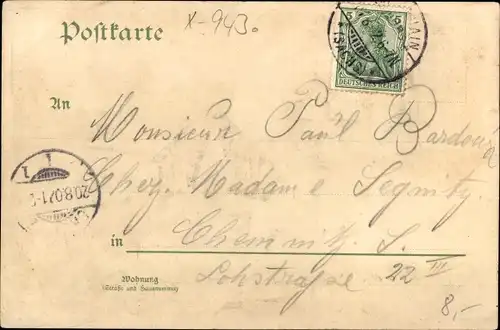 X-943.
Postkarte
DEUTSCHES REICH
An
Monsieur Paul Bardoux
Chez Madame Segnitz
in Chemnitz. S.
Wohnung
(Straße und Hausnummer)
Lohstrasse 22 III
20.8.02.1-
8,-